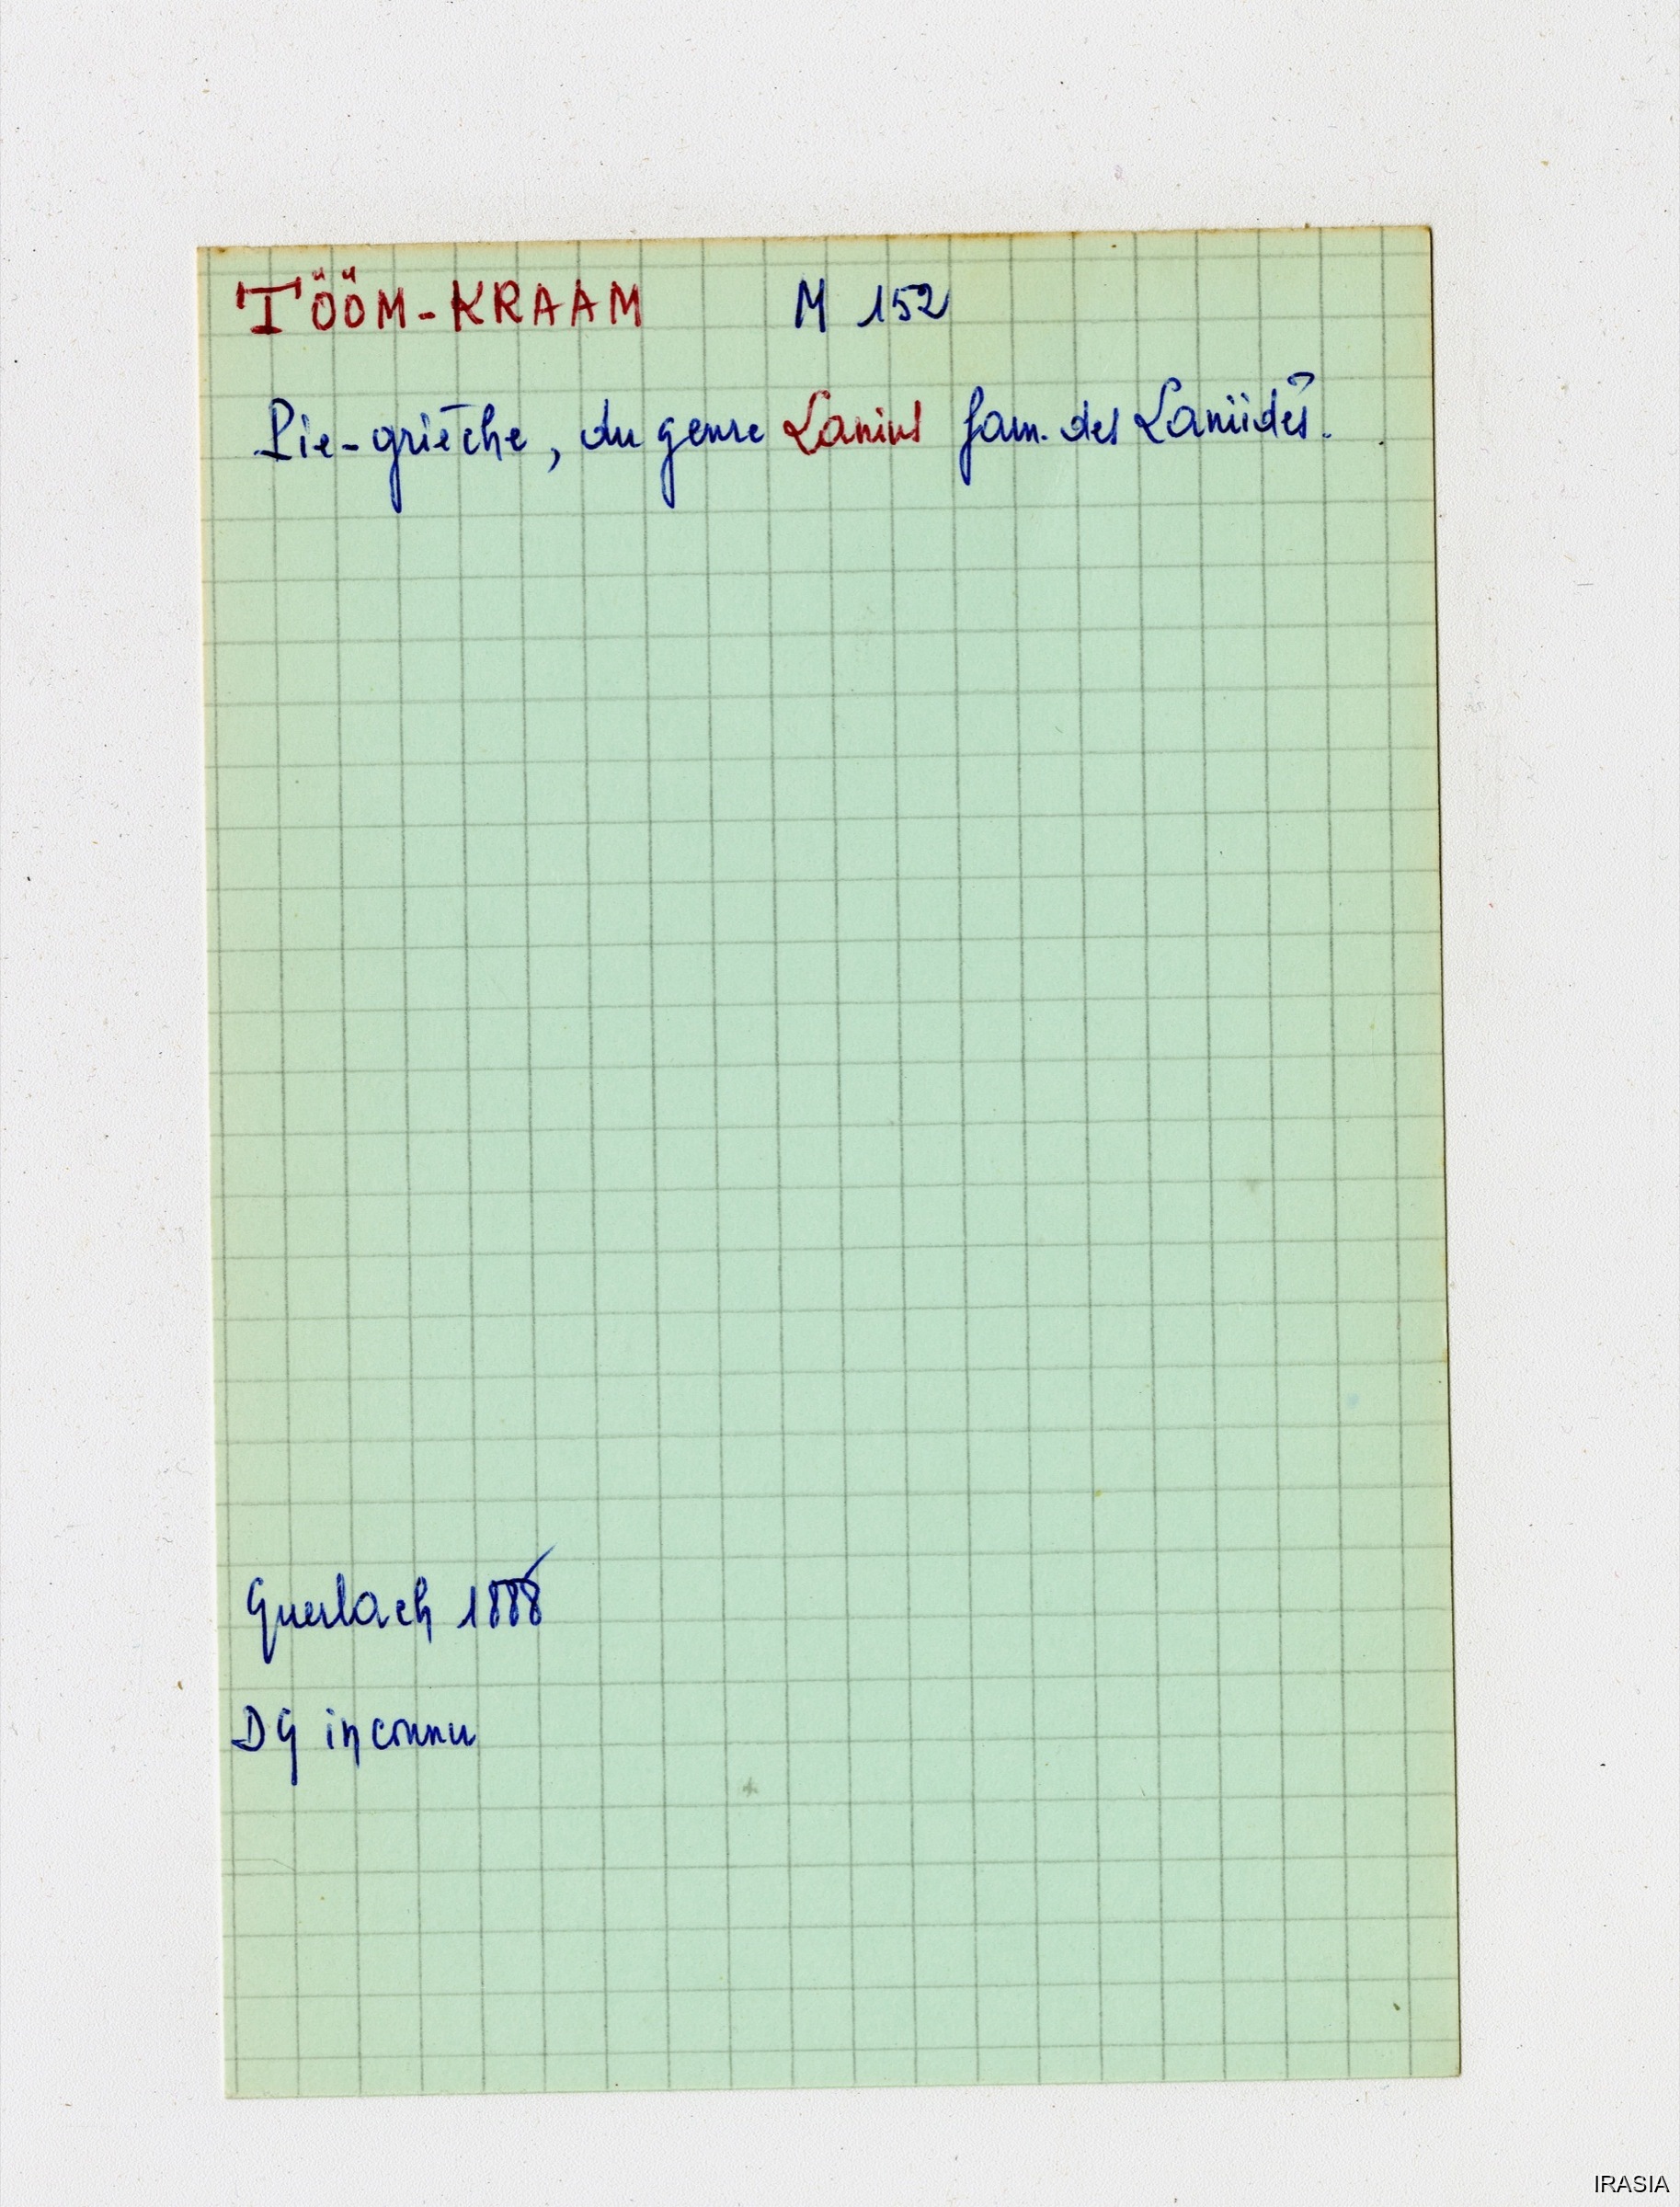 TÖÖM-KRAAM M 152
Pie-grièche, du genre Lanius fam. des Laniidés.
Guerlach 1888
DG inconnu
IRASIA